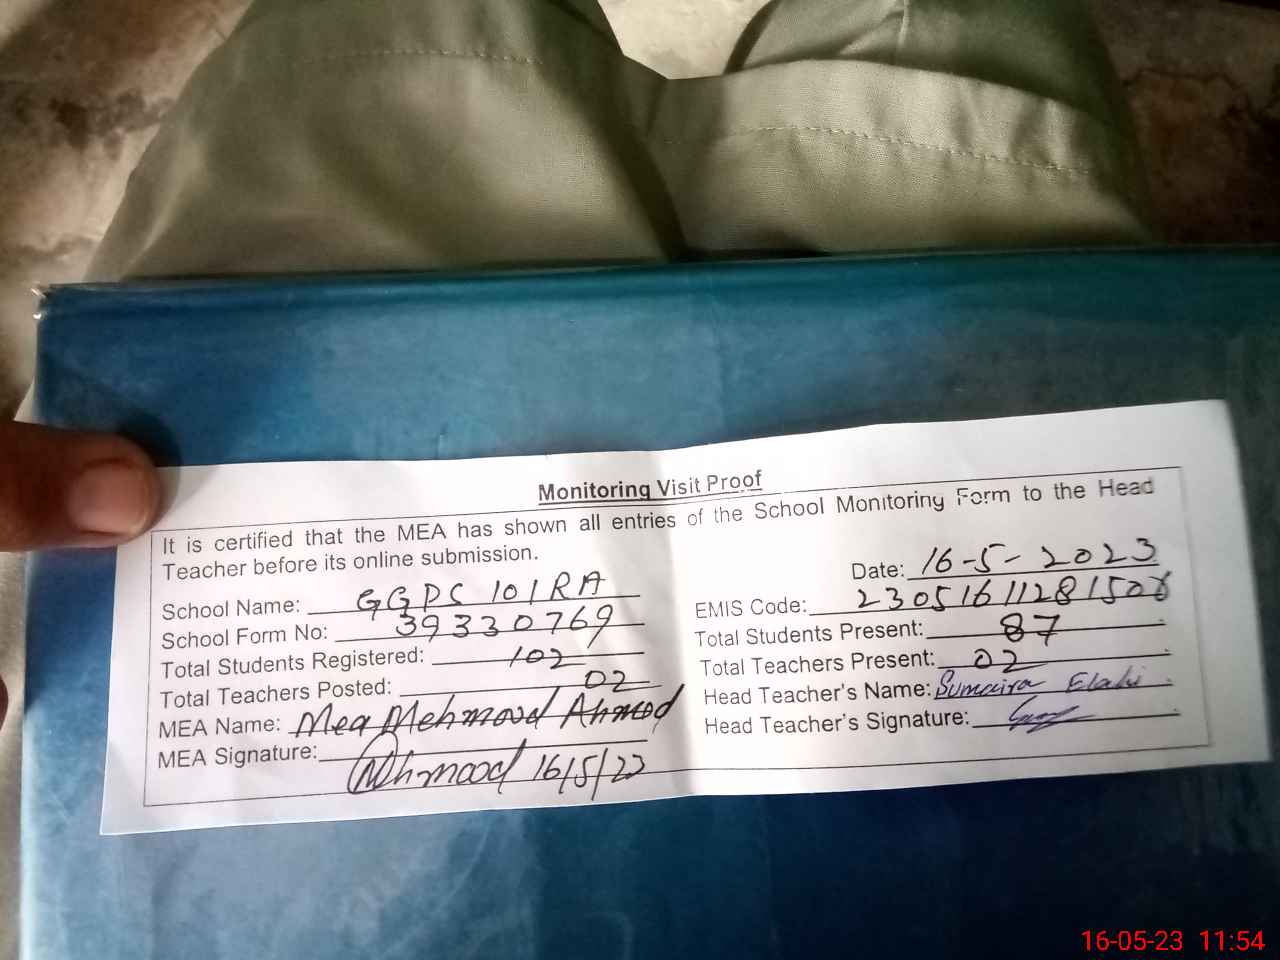 Monitoring Visit Proof
It is certified that the MEA has shown all entries of the School Monitoring Form to the Head
Teacher before its online submission.
Date: 16-5-2023
School Name: GGPS 101RA
EMIS Code: 23051611281506
School Form No: 39330769
Total Students Present: 87
Total Students Registered: 102
Total Teachers Present: 02
Total Teachers Posted: 02
Head Teacher's Name: Sumaira Elahi
MEA Name: Mea Mehmood Ahmad
Head Teacher's Signature:
MEA Signature: Mehmood 16/5/23
16-05-23 11:54